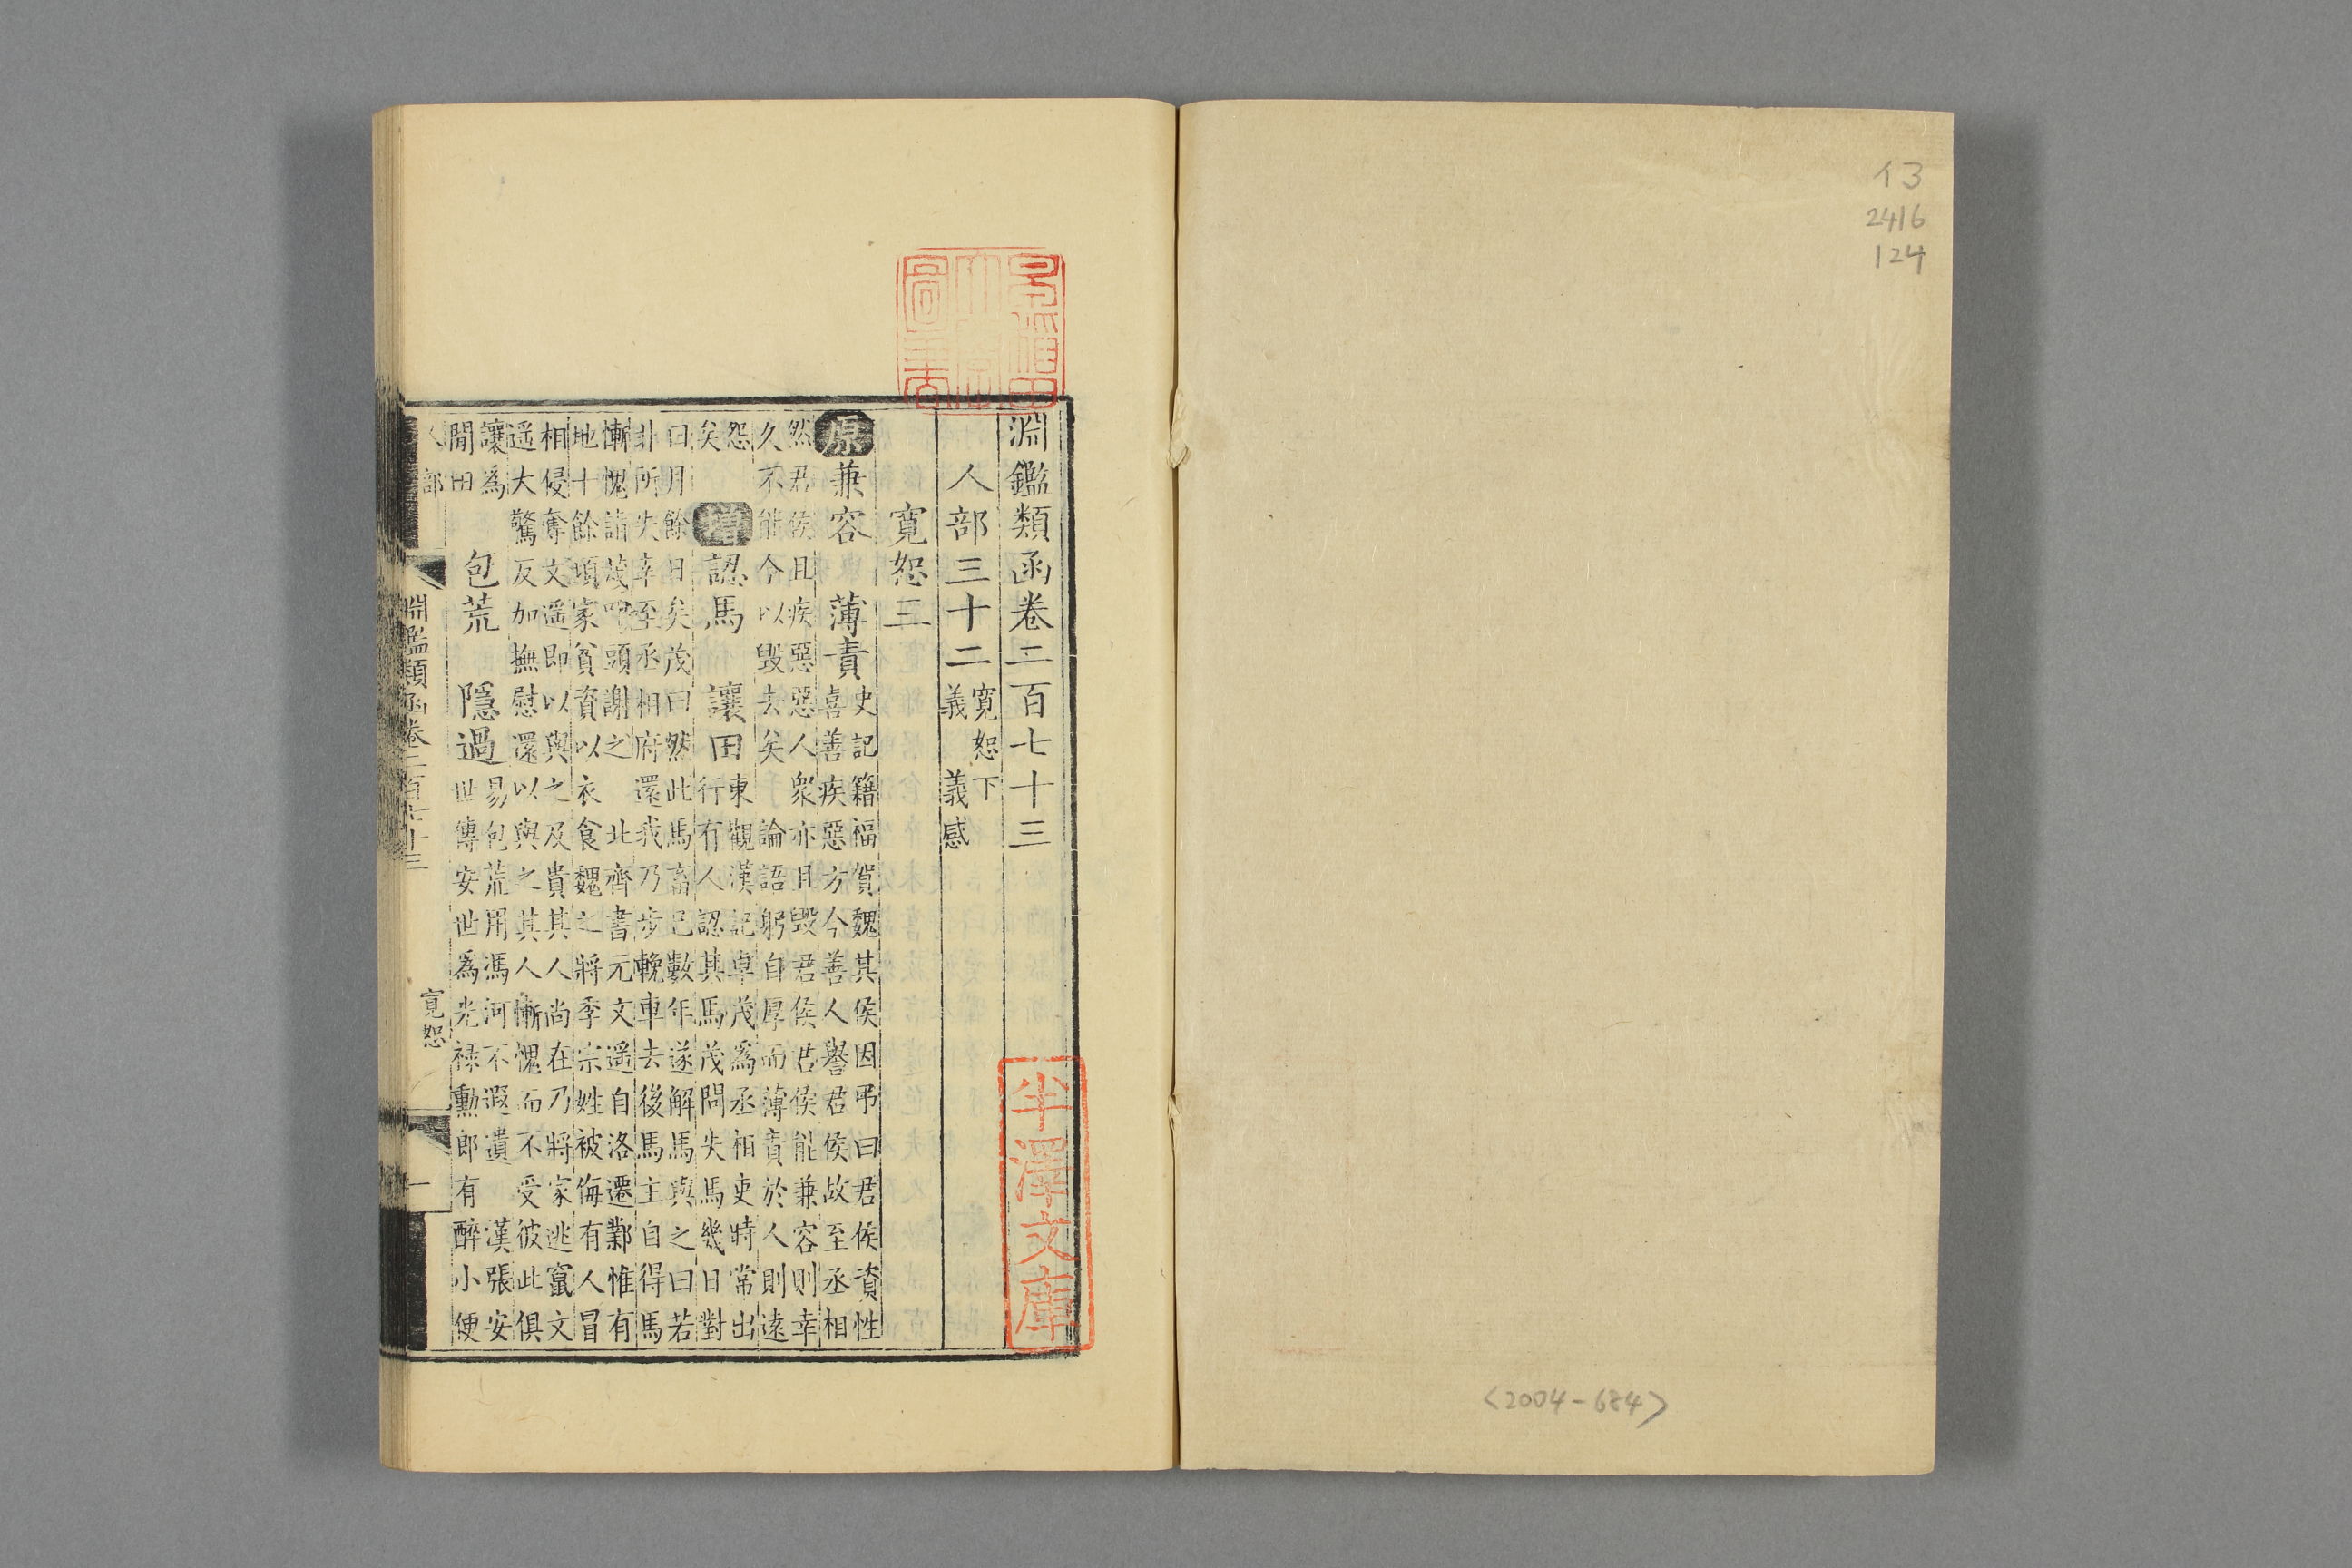 13
2416
124
<2004-684>
淵鑑類函卷二百七十三
人部三十二 寬恕下
義 義感
寬恕三
原 兼容 薄責 史記籍福賀魏其侯因弔曰君侯資性
喜善疾惡方今善人譽君侯故至丞相
然君侯且疾惡惡人衆亦且毀君侯君侯能兼容則幸
久不能今以毀去矣 論語躬自厚而薄責於人則遠
怨
矣
增 認馬 讓田 東觀漢記卓茂爲丞相吏時常出
行有人認其馬茂問失馬幾日對
曰月餘日矣茂曰然此馬畜已數年遂解馬與之曰若
非所失幸至丞相府還我乃步輓車去後馬主自得馬
慚愧詣茂叩頭謝之 北齊書元文遥自洛遷鄴惟有
地十餘頃家貧資以衣食魏之將季宗姓被侮有人冒
相侵奪文遥即以與之及貴其人尚在乃將家逃竄文
遥大驚反加撫慰還以與之其人慚愧而不受彼此俱
讓爲
閒田
包荒 隱過 易包荒用馮河不遐遺 漢張安
世傳安世爲光祿勳郎有醉小便
人部
淵鑑類函卷二百七十三
寬恕
一
半澤文庫